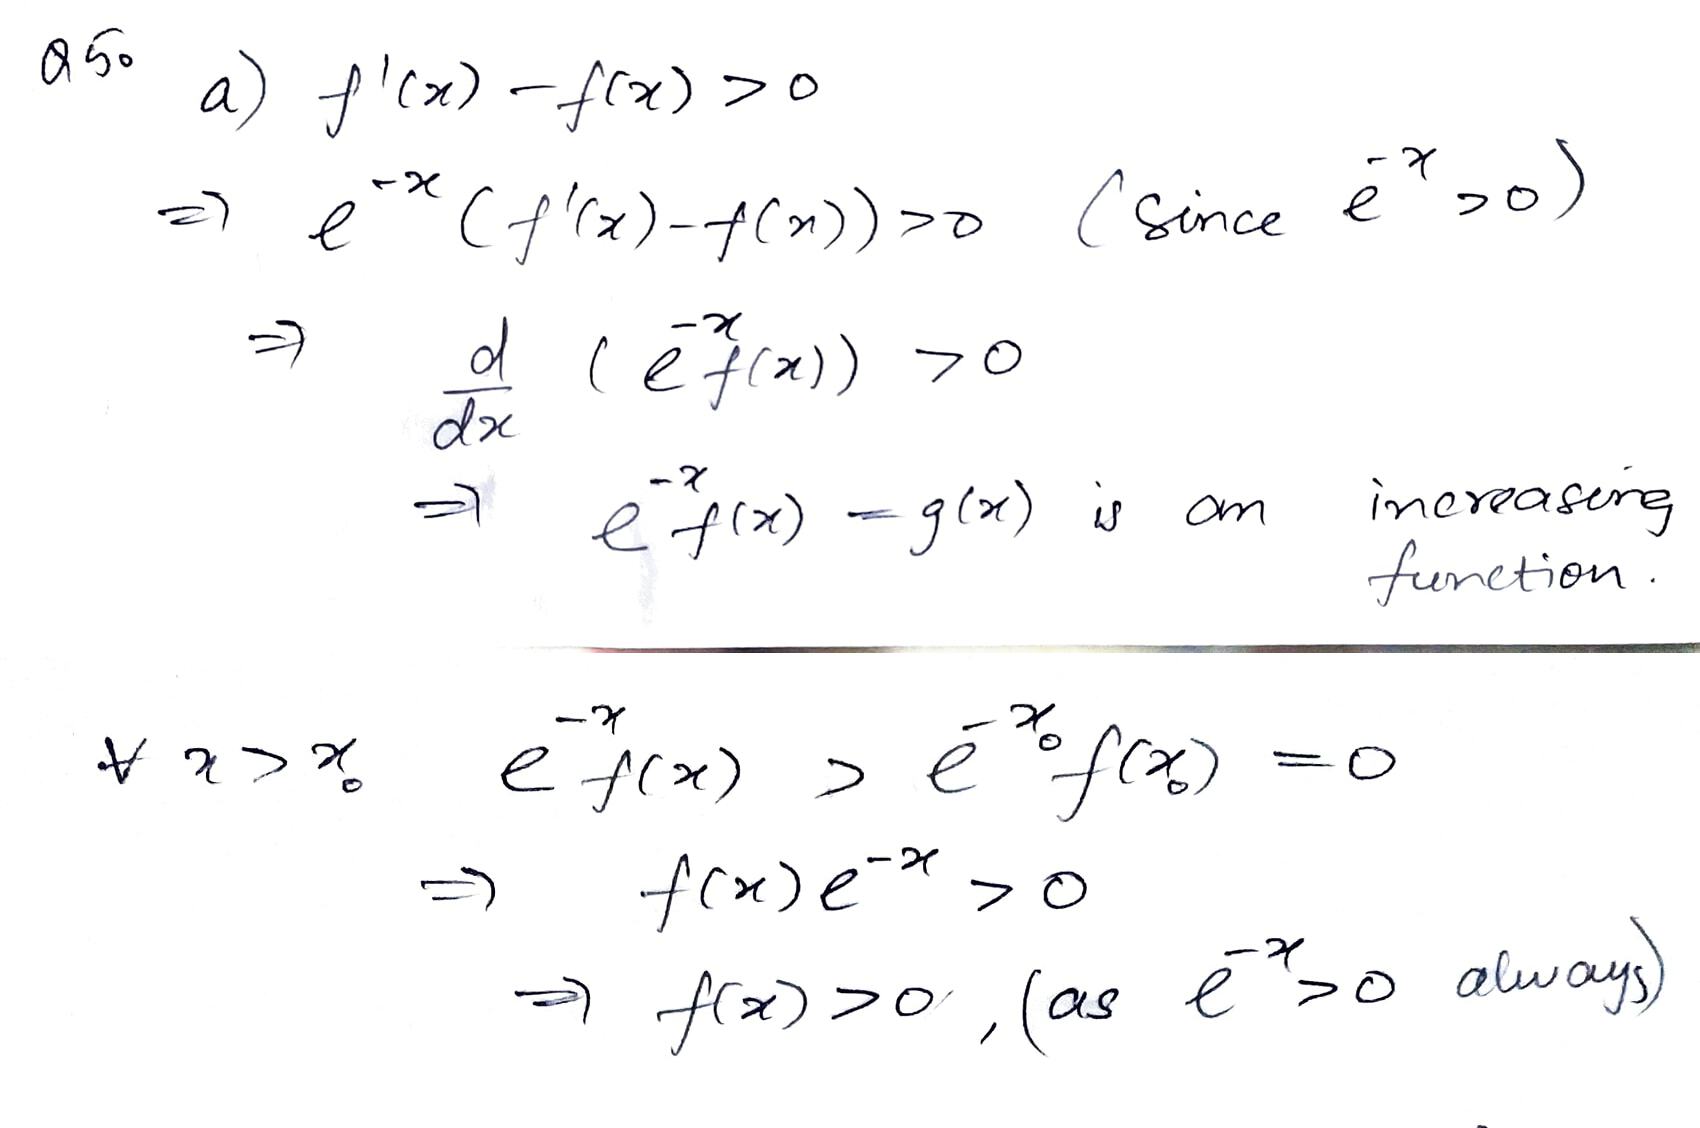 Q5. a) f'(x) - f(x) > 0
⇒ e^{-x} (f'(x) - f(x)) > 0 (since e^{-x} > 0)
⇒ d/dx (e^{-x} f(x)) > 0
⇒ e^{-x} f(x) = g(x) is an increasing
function.
∀ x > x₀ e^{-x} f(x) > e^{-x₀} f(x₀) = 0
⇒ f(x) e^{-x} > 0
⇒ f(x) > 0, (as e^{-x} > 0 always)